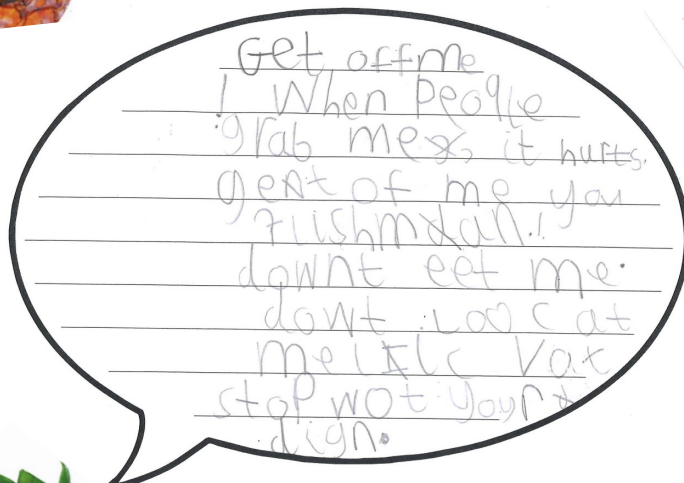 Get off me
! When PeoPle
grab me, it hurts.
gent of me you
FiishmXan!
downt eet me.
dowt Looc at
me LIlc Vat
stop wot your
dign.